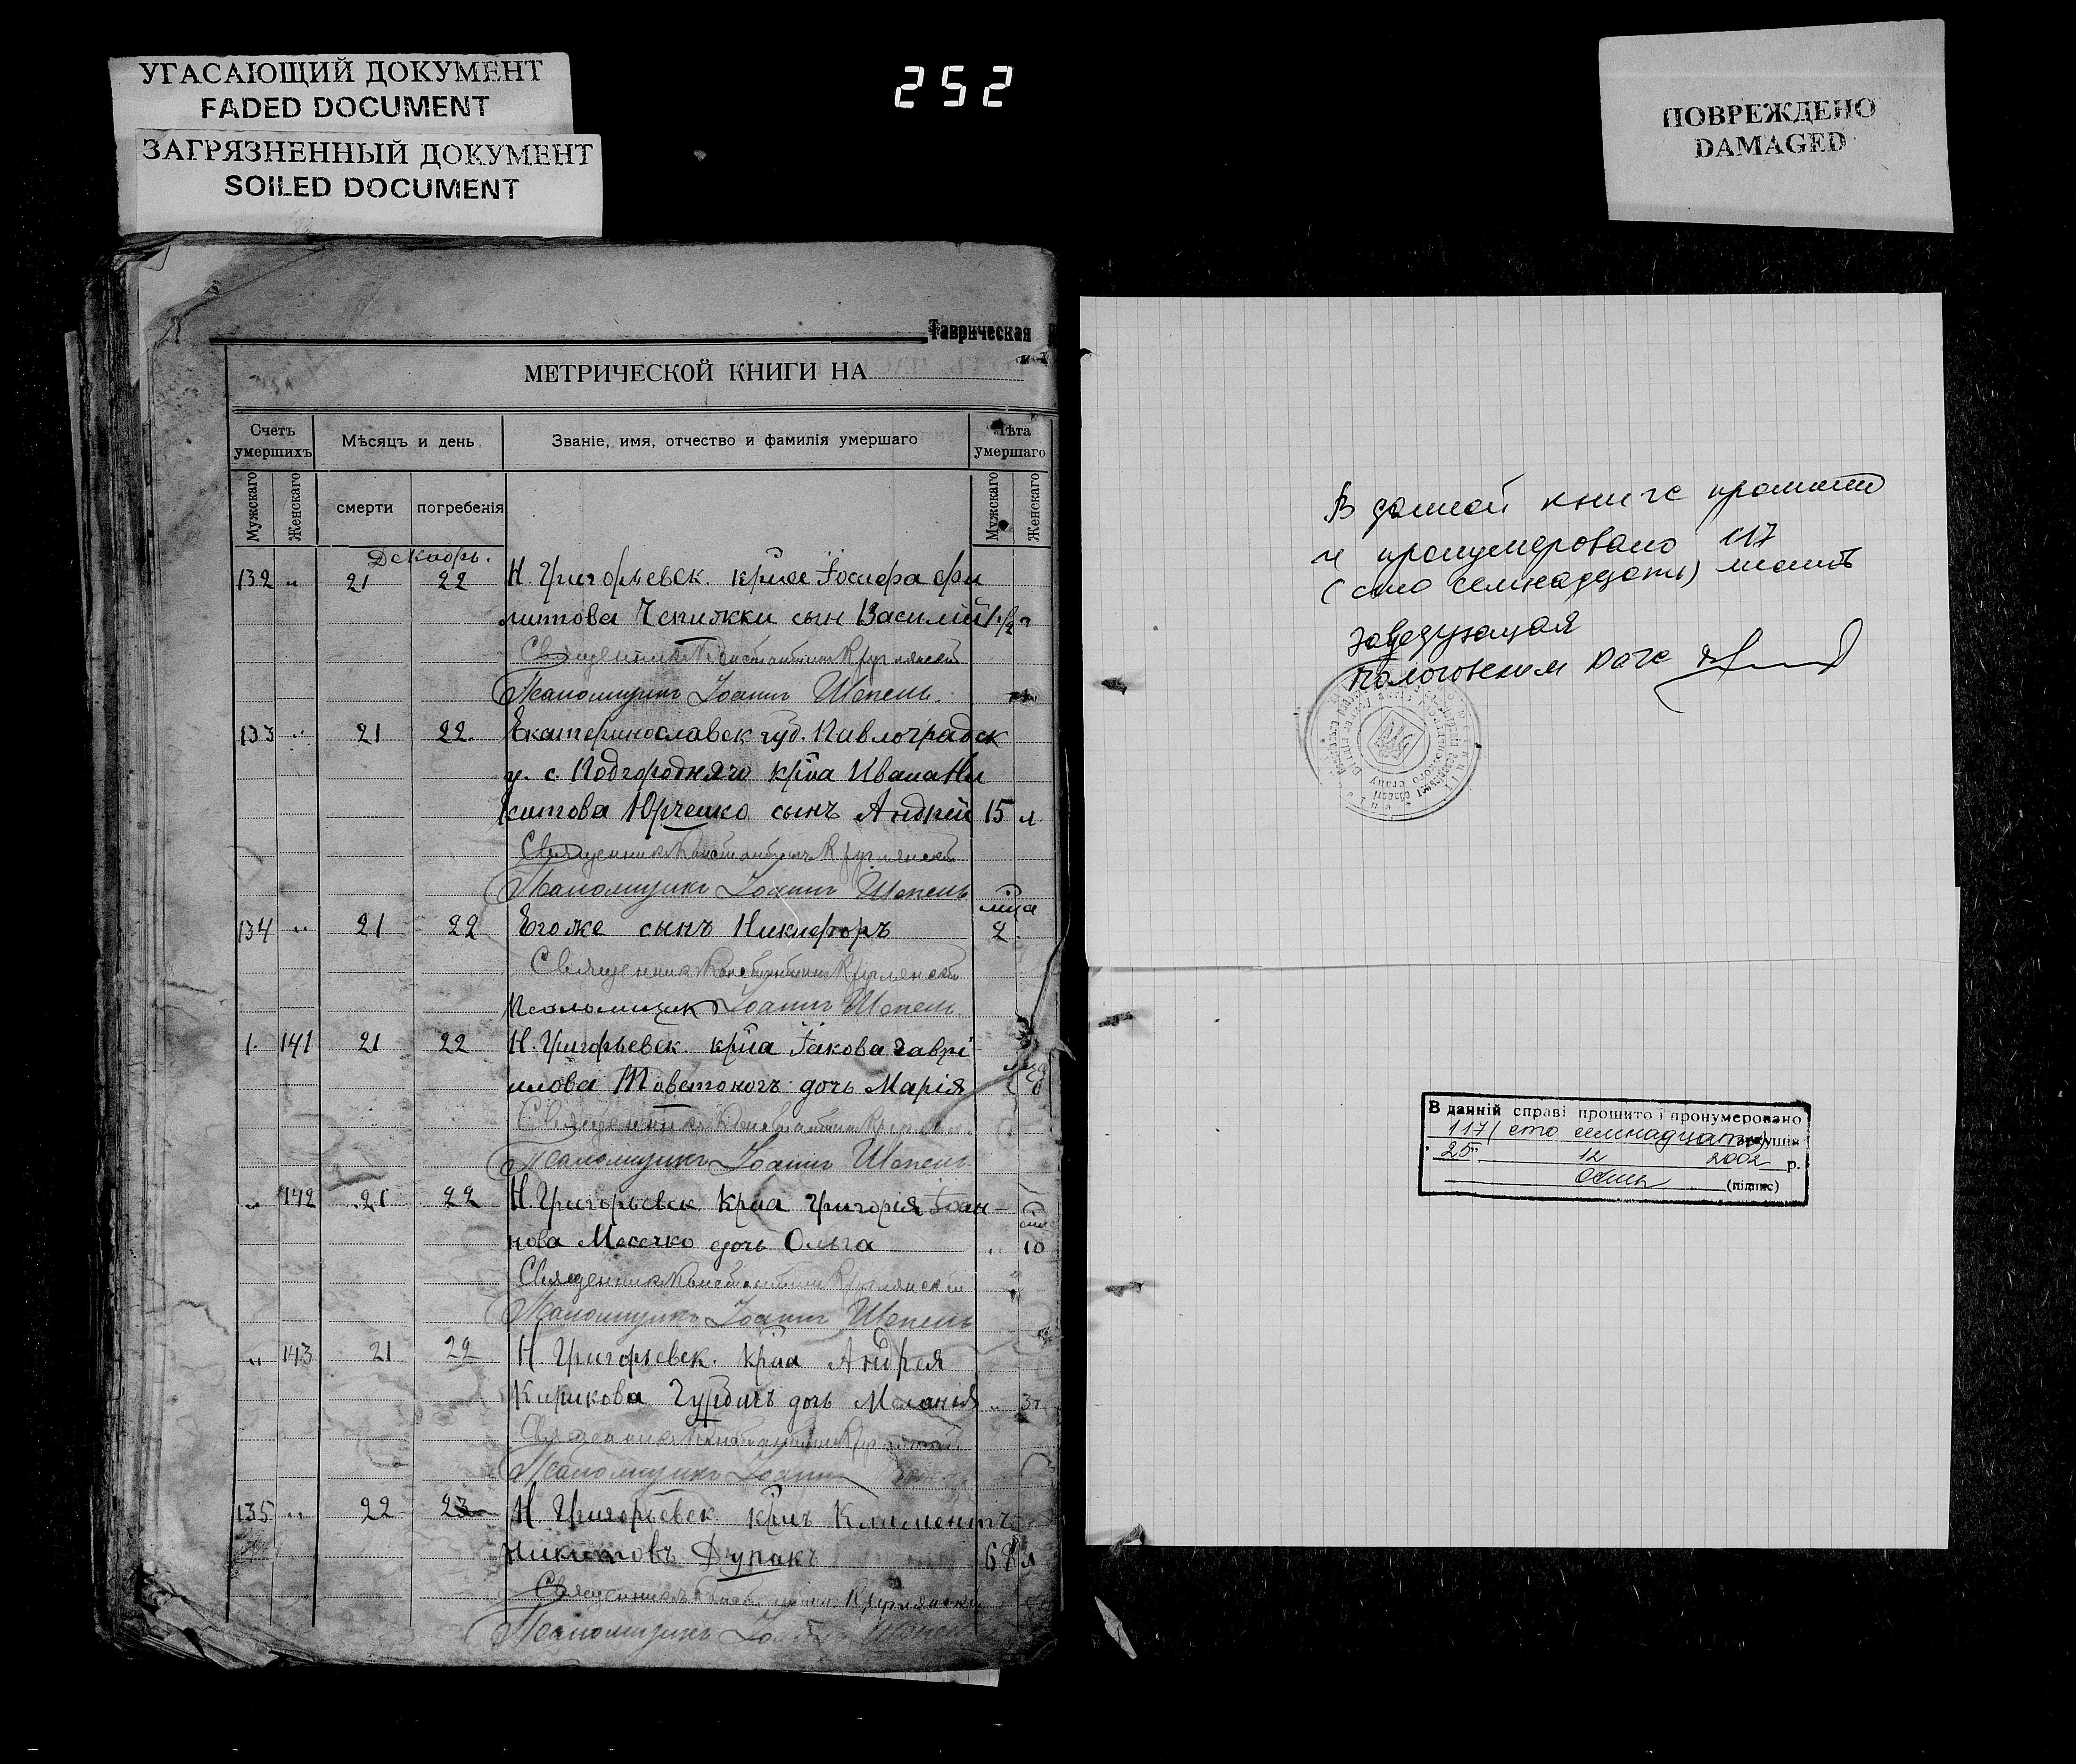 УГАСАЮЩИЙ ДОКУМЕНТ
FADED DOCUMENT
ЗАГРЯЗНЕННЫЙ ДОКУМЕНТ
SOILED DOCUMENT
252
ПОВРЕЖДЕНО
DAMAGED
Таврическая
МЕТРИЧЕСКОЙ КНИГИ НА
Счетъ умершихъ
Мѣсяцъ и день
Званіе, имя, отчество и фамилія умершаго
Лѣта умершаго
Мужскаго
Женскаго
смерти
погребенія
Мужскаго
Женскаго
Декабрь.
132 „ 21 22 Н. Григорьевск. крна Іосифа Фи
липова Чепижки сын Василій 1 1/2 г
Священникъ Константинъ Круглянскій
Псаломщикъ Іоаннъ Шепель.
133 „ 21 22. Екатеринославск губ. Павлоградск
у. с. Подгородняго крна Ивана Ни
китова Юрченко сынъ Андрей 15 л
Священникъ Константинъ Круглянскій
Псаломщикъ Іоаннъ Шепель
мца
134 „ 21 22 Егоже сынъ Никифоръ 2
Священникъ Константинъ Круглянскій
Псаломщик Іоаннъ Шепель
1. 141 21 22 Н. Григорьевск. крна Іакова Гаврі
илова Товстоногъ дочь Марія
Священникъ Константинъ
Псаломщикъ Іоаннъ Шепель
„ 142 21 22 Н. Григорьевск крна Григорія Іоан-
нова Месечко дочь Ольга „ 10
Священникъ Константинъ Круглянскій
Псаломщикъ Іоаннъ Шепель
„ 143 21 22 Н. Григорьевск. крна Андрея
Кирикова дочь Меланія „ 3 г
Священникъ Константинъ
Псаломщикъ Іоаннъ
135 „ 22 23 Н. Григорьевск крнъ Климентъ
Никитовъ Дупакъ 68 л
Священникъ Круглянскій
Псаломщикъ Іоаннъ Шепель
В данной книге прошито
и пронумеровано 117
(сто семнадцать) листов
Заведующая
Пологовским
В данній справі прошито і пронумеровано
117 (сто семнадцать)
25 12 2002 р.
(підпис)